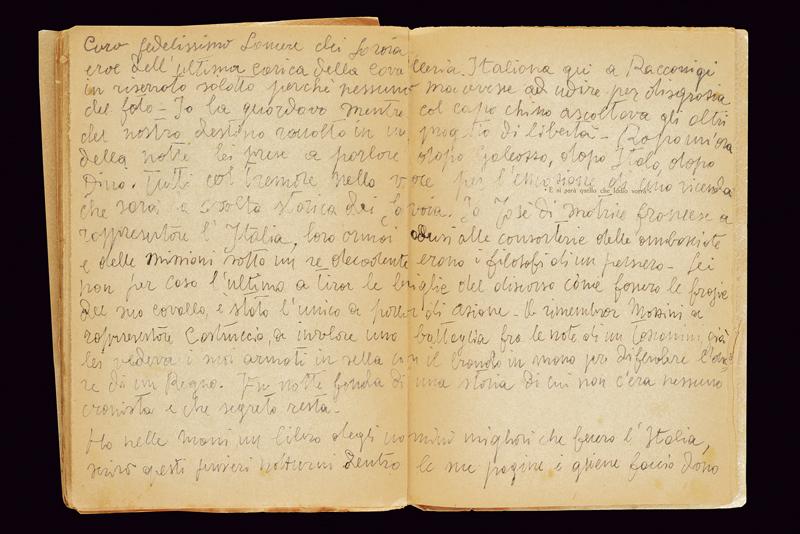 Caro fedelissimo Lancere dei Savoia
eroe dell'ultima carica della cavalleria Italiana qui a Racconigi
in riservato salotto perchè nessuno movesse ad udire per disgrazia
del fato - Io la guardavo mentre col capo chino ascoltava gli altri
del nostro destino raccolto in un pugno di libertà -
della notte lei prese a parlare dopo Galeasso, dopo Italo, dopo
Dino. Tutti col tremore nella voce per l'emozione di una vicenda
E si però quello che Iddio vorrà
che sarà la svolta storica dei Savoia. Io José di Matrice francese a
rappresentare l'Italia, loro ormai adusi alle consorterie delle ambasciate
e delle missioni sotto un re decadente erano i filosofi di un pensiero - Lei
non per caso l'ultimo a tirar le briglie del discorso come fanno le frogie
del suo cavallo, è stato l'unico a parlar di azione - Un rimembrar Massini a
rappresentare Castruccio, a involare una battaglia fra le note di un
lei vedeva i suoi armati in sella con il brando in mano per difendere
re di un Regno. Fu notte fonda di una storia di cui non c'era nessuno
cronista e che segreto resta -
Ho nelle mani un libro degli uomini migliori che fecero l'Italia,
scrivo questi pensieri notturni dentro le sue pagine e gliene faccio dono